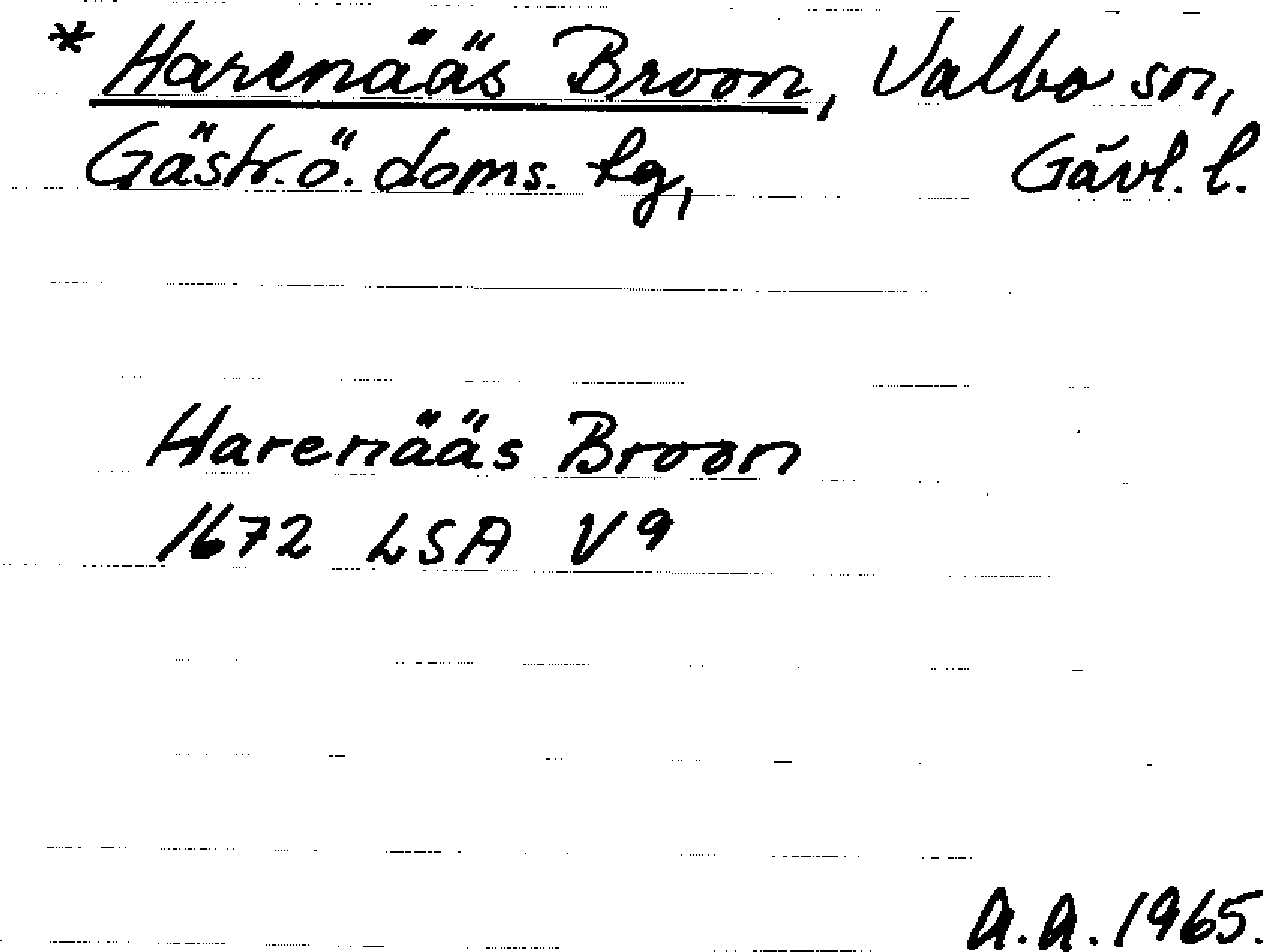 * Harenääs Broon, Valbo sn,
Gästr. ö. doms. tg, Gävl. l.
Harenääs Broon
1672 LSA V 9
A.A. 1965.